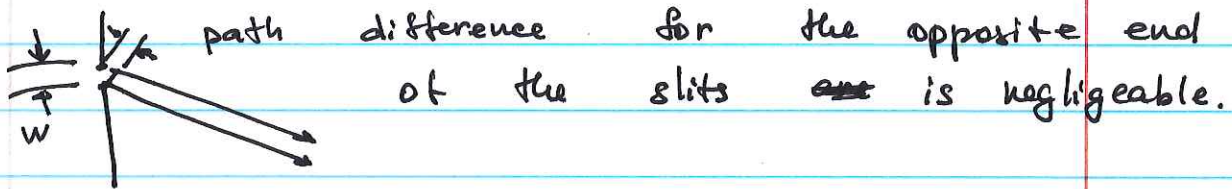 path difference for the opposite end
of the slits is negligeable.
W